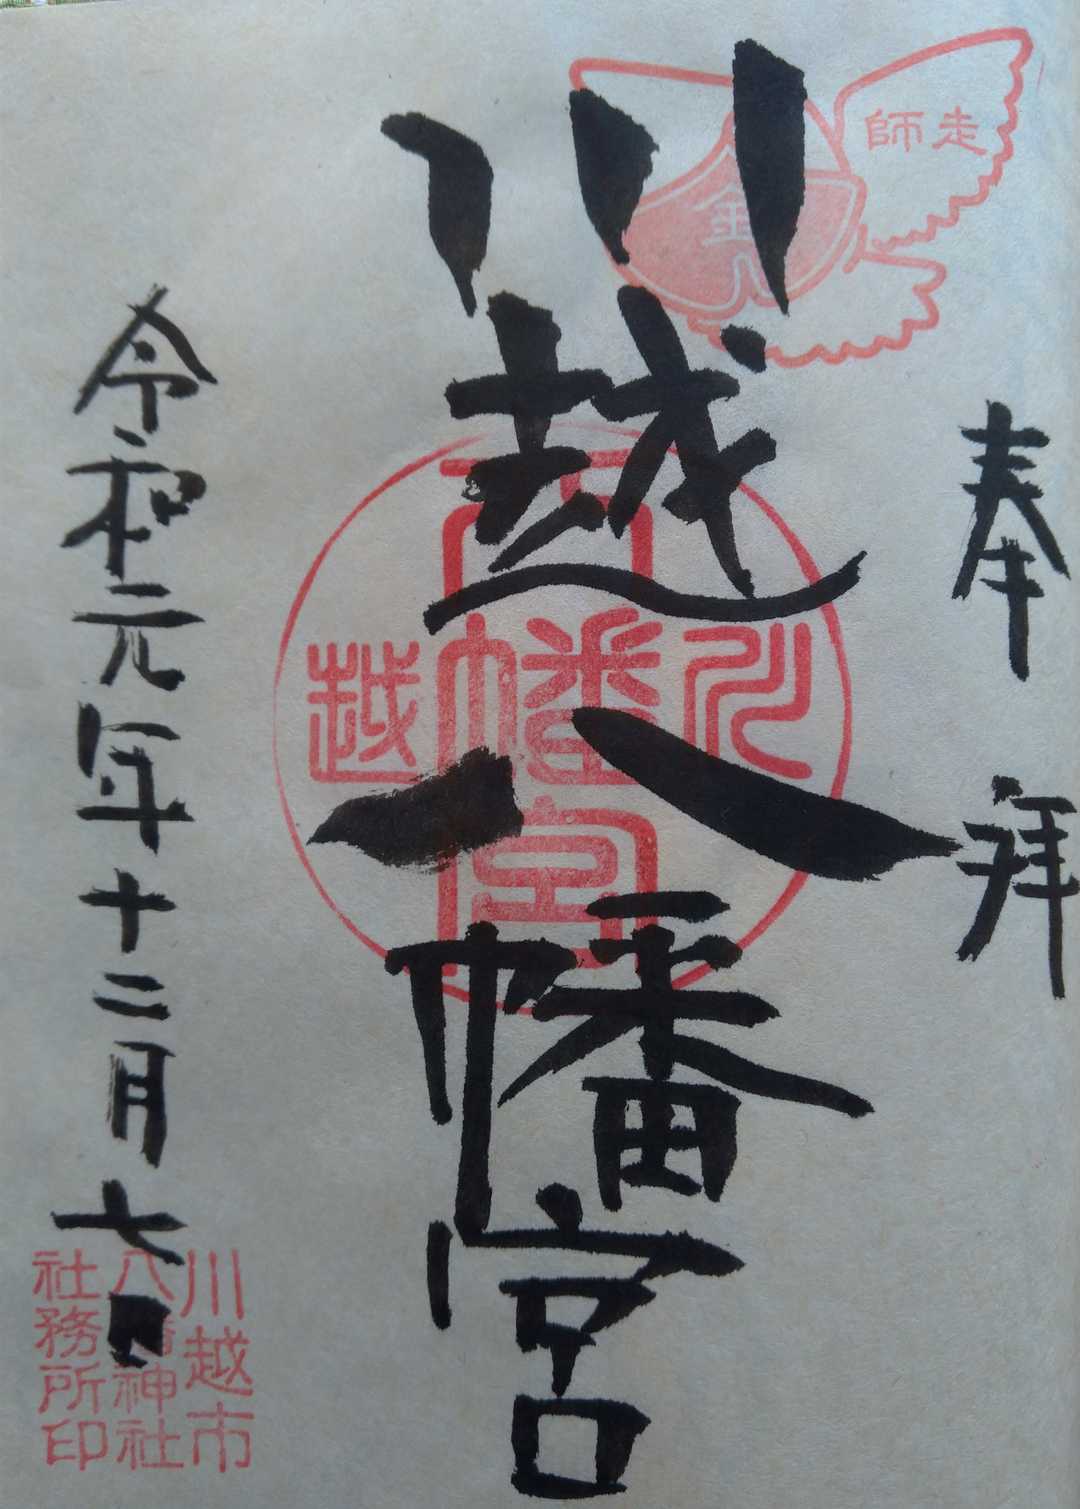 奉拝
走師
金
川越八幡宮
川越
八幡宮
令和元年十二月七日
川越市
八幡神社
社務所印